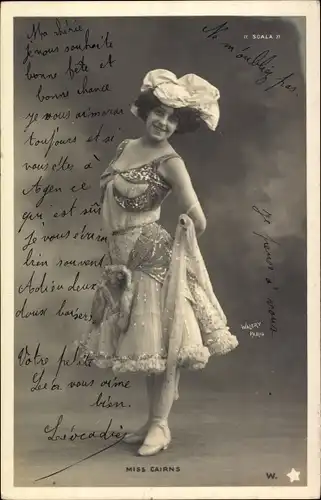 Ma chérie
je vous souhaite
bonne fête et
bonne chance
je vous aimerai
toujours et si
vous êtes à
Agen ce
qui est sûr
Je vous écrirai
bien souvent
Adieu deux
doux baisers
Votre petite
Léo vous aime
bien.
Léocadie
" SCALA "
Ne m'oubliez pas.
Je pense à vous
WALERY
PARIS
MISS CAIRNS
W.